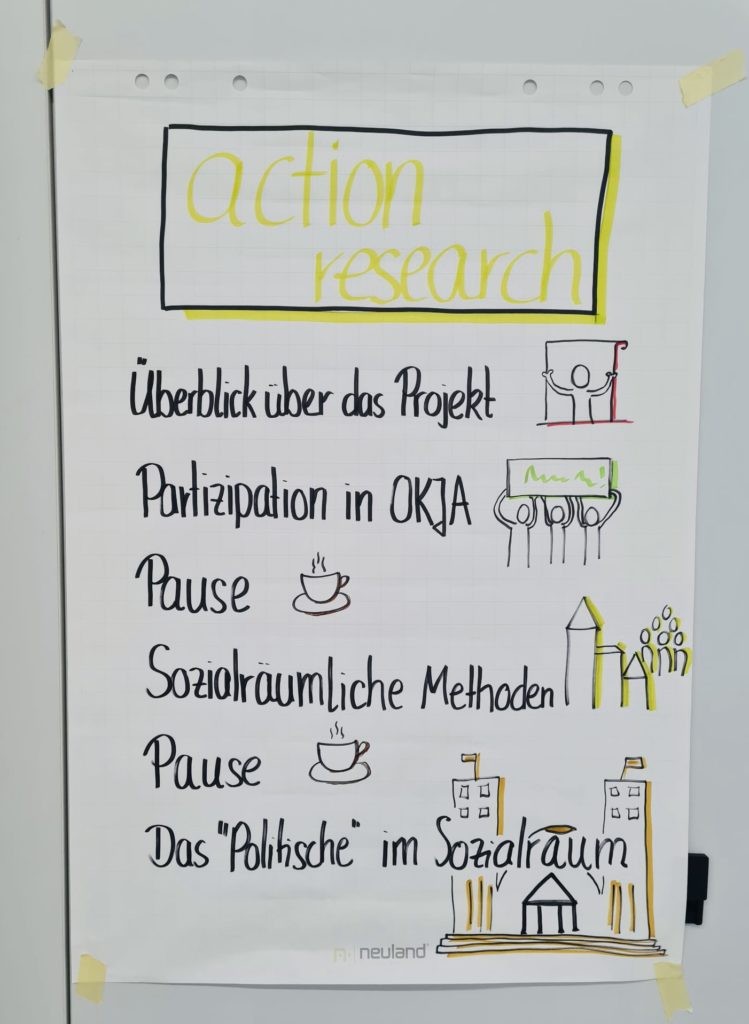 action
research
Überblick über das Projekt
Partizipation in OKJA
Pause
Sozialräumliche Methoden
Pause
Das "Politische" im Sozialraum
neuland